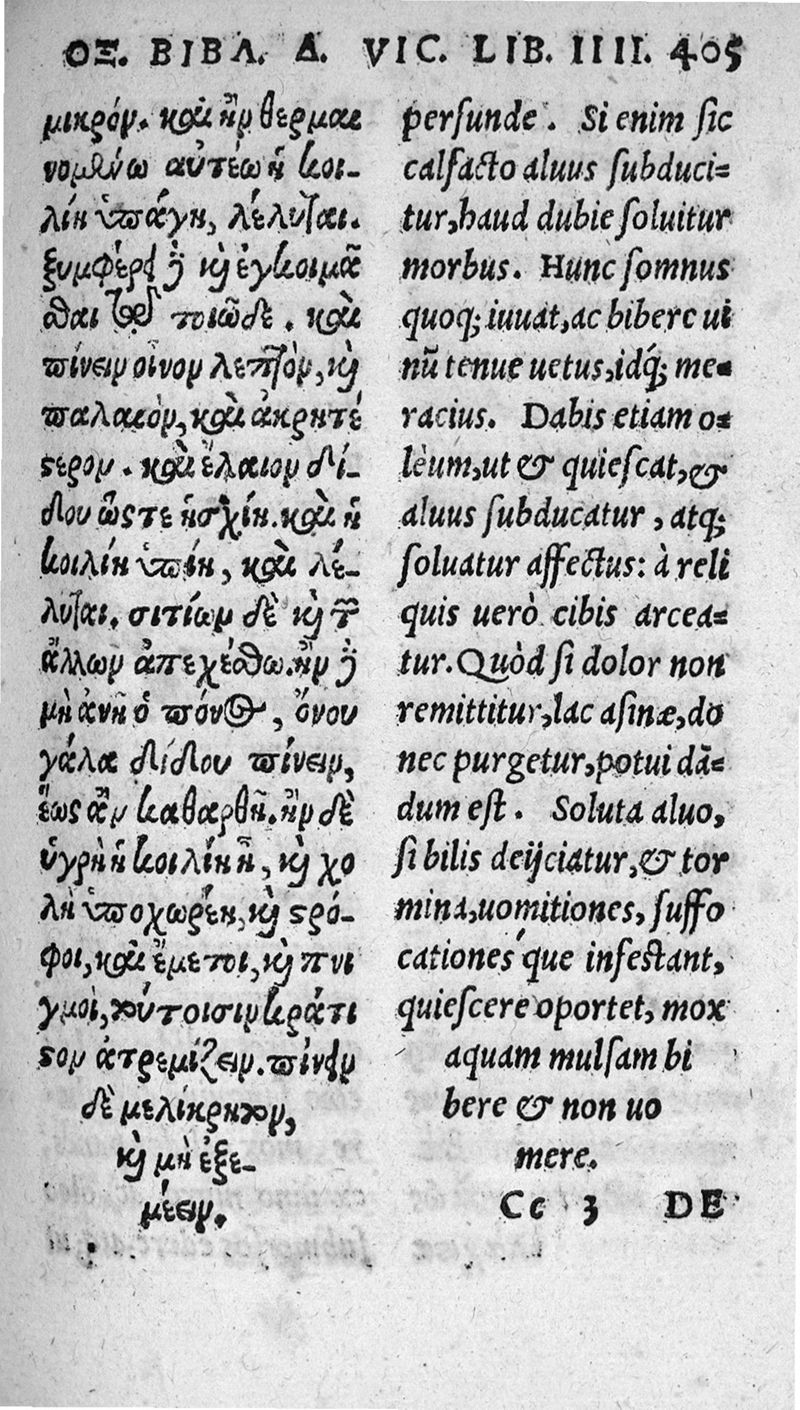 ΟΞ. ΒΙΒΛ. Δ. VIC. LIB. IIII. 405
μικρόν. καὶ ἢν θερμαι
νομένῳ αὐτέῳ ἡ κοι-
λίη ὑπάγῃ, λέλυται.
ξυμφέρει δὲ καὶ ἐγκοιμᾶ
σθαι τῷ τοιῷδε. καὶ
πίνειν οἶνον λεπτὸν, καὶ
παλαιὸν, καὶ ἀκρητέ
στερον. καὶ ἔλαιον δί-
δου ὥστε ἡσχίη. καὶ ἡ
κοιλίη ὑπίῃ, καὶ λέ-
λυται. σιτίων δὲ καὶ τῶν
ἄλλων ἀπεχέσθω. ἢν δὲ
μὴ ἀνῇ ὁ πόνος, ὄνου
γάλα δίδου πίνειν,
ἕως ἂν καθαρθῇ. ἢν δὲ
ὑγρὴ ἡ κοιλίη ᾖ, καὶ χο
λὴ ὑποχωρέῃ, καὶ στρό-
φοι, καὶ ἔμετοι, καὶ πνι
γμοὶ, τούτοισιν κράτι
στον ἀτρεμίζειν. πίνειν
δὲ μελίκρητον,
καὶ μὴ ἐξε-
μέειν.
persunde. Si enim sic
calfacto aluus subduci=
tur, haud dubie soluitur
morbus. Hunc somnus
quoq; iuuat, ac bibere ui
nū tenue uetus, idq́; me=
racius. Dabis etiam o=
lèum, ut & quiescat, &
aluus subducatur, atq;
soluatur affectus: à reli
quis uerò cibis arcea=
tur. Quòd si dolor non
remittitur, lac asinæ, do
nec purgetur, potui dā=
dum est. Soluta aluo,
si bilis deijciatur, & tor
mina, uomitiones, suffo
cationes'que infestant,
quiescere oportet, mox
aquam mulsam bi
bere & non uo
mere.
Cc 3 DE